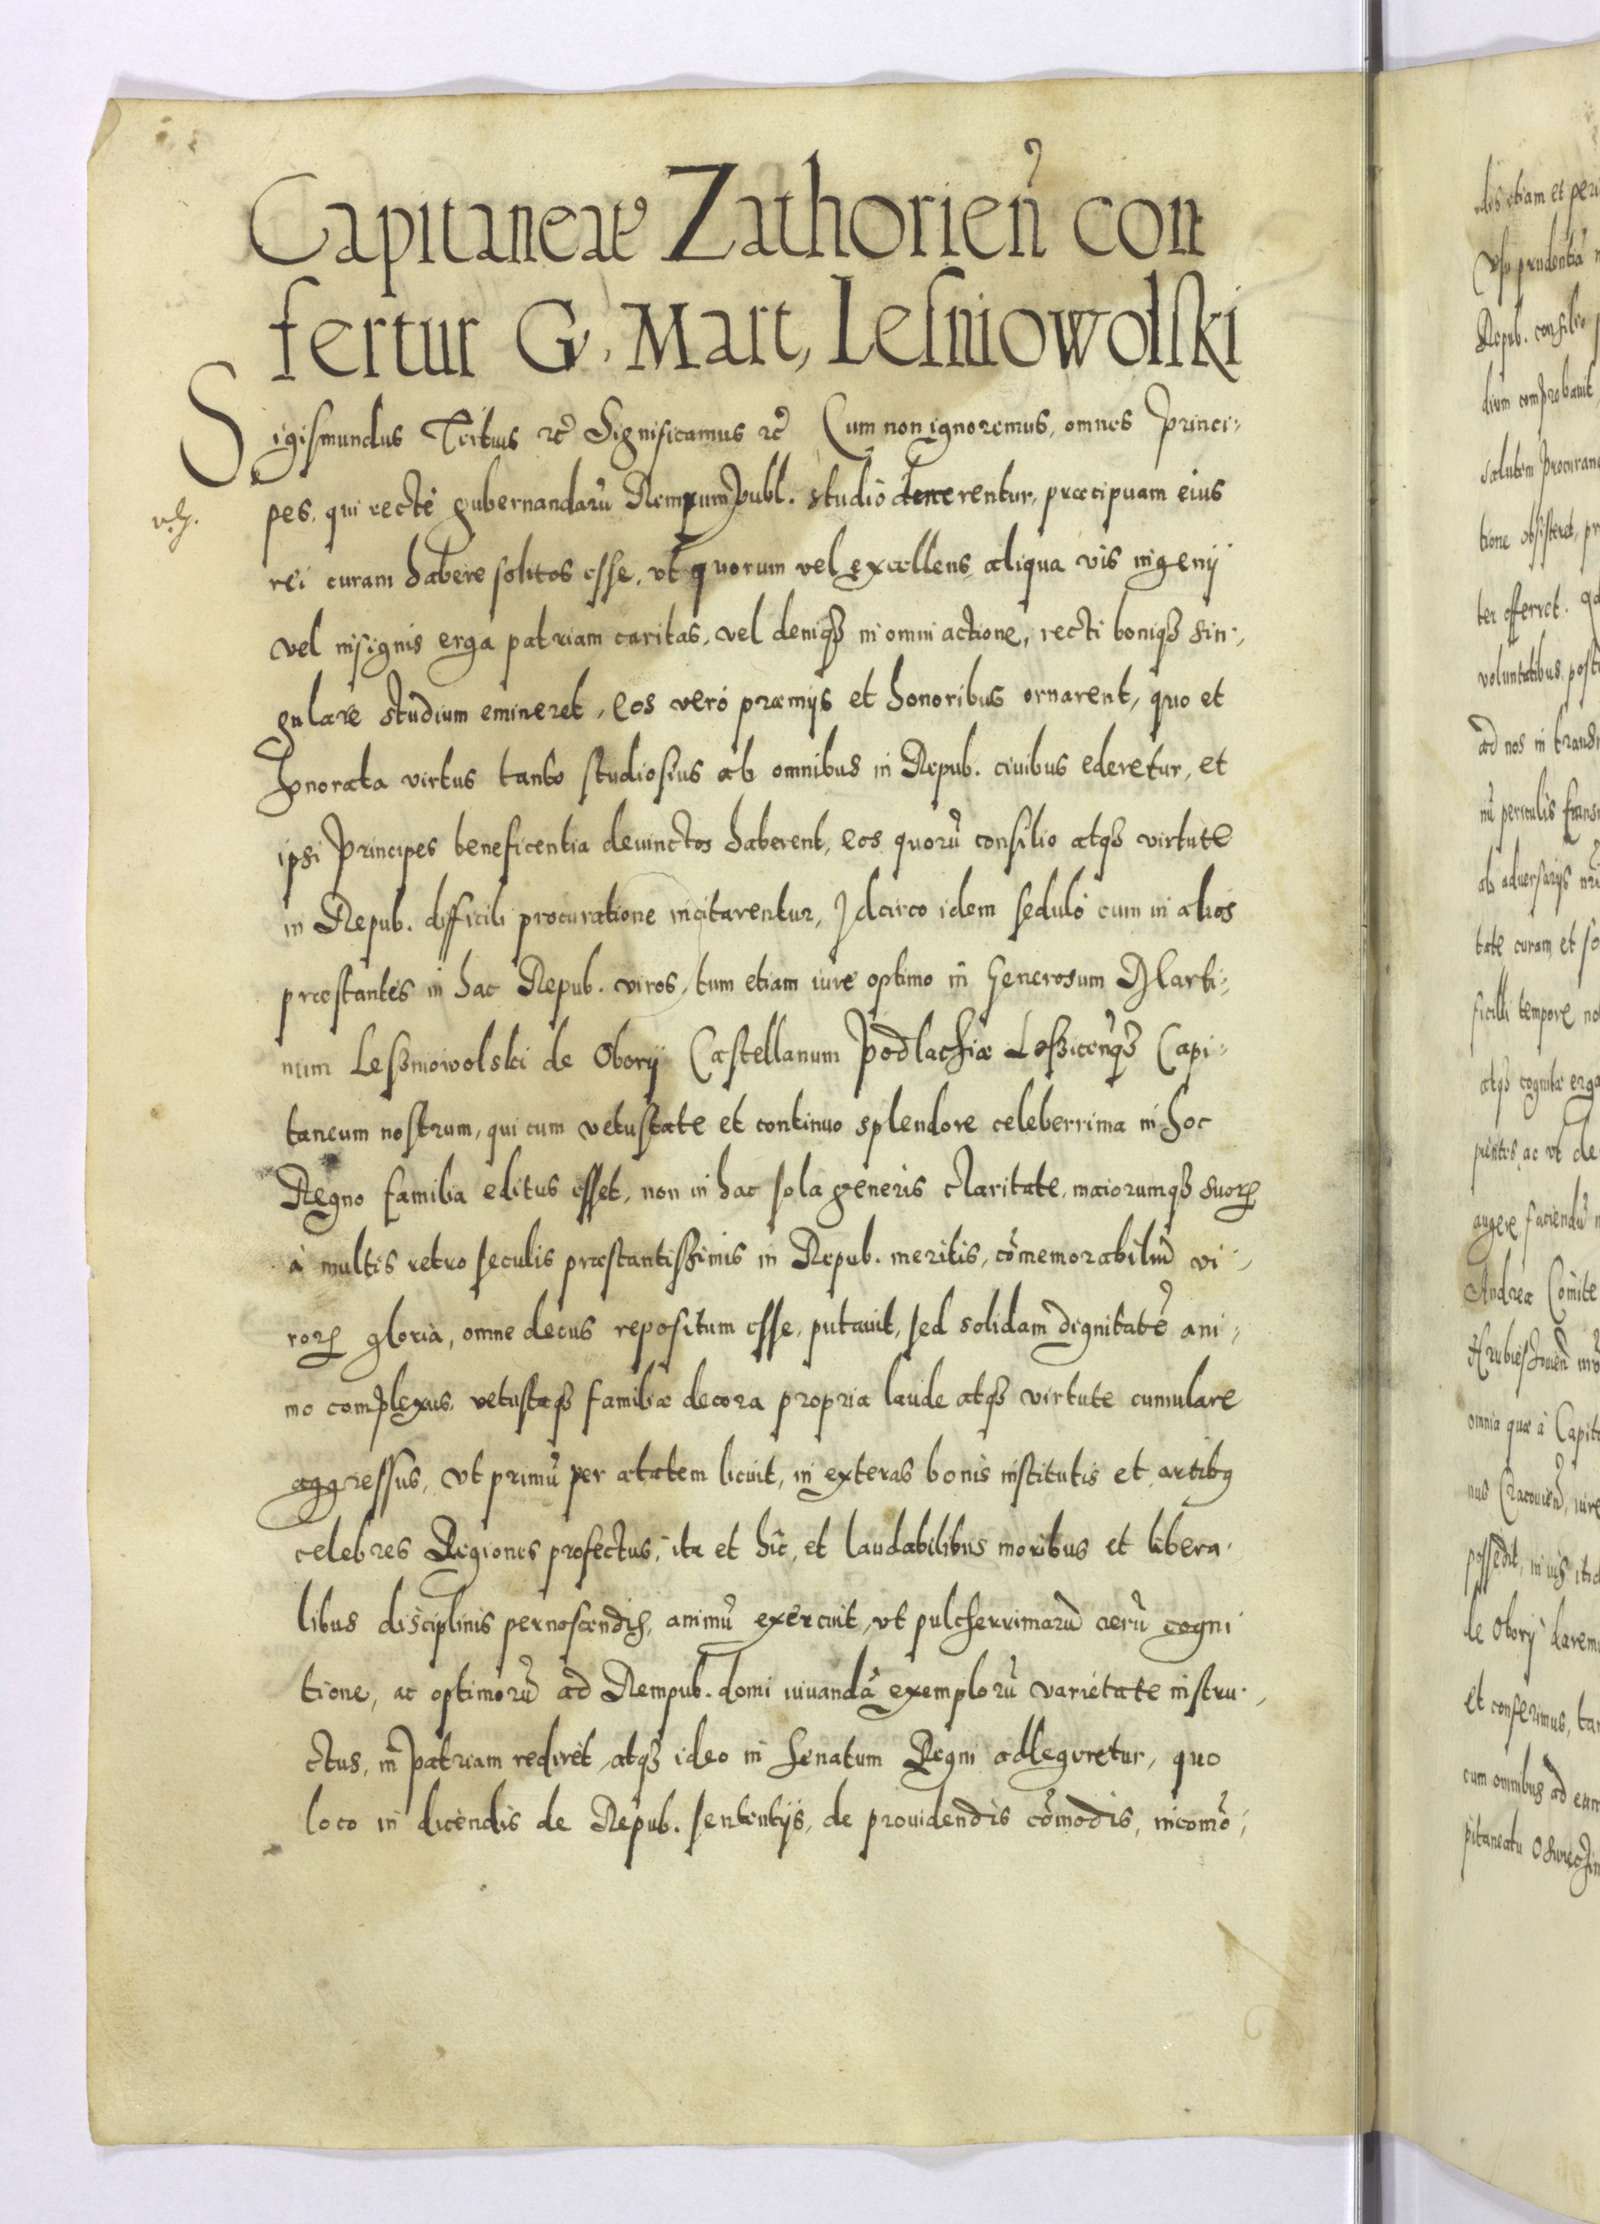 Capitaneat9 Zathorień con
fertur G. Mart, Lesniowolski
Sigismundus Tertius rc̃ Significamus rc̃ Cum non ignoremus, omnes Princi-
pes, qui recte gubernandarũ Rerumpubl. studio tenerentur, præcipuam eius
rei curam habere solitos esse, vt quorum vel excellens aliqua vis ingenij
vel insignis erga patriam caritas, vel deniqꝫ in omni actione, recti boniqꝫ sin-
gulare studium emineret, eos veró præmijs et honoribus ornarent, quo et
honorata virtus tanto studiosius ab omnibus in Repub. ciuibus ederetur, et
ipsi Principes beneficentia deuinctos haberent, eos quorũ consilio atqꝫ virtute
in Repub. difficili procuratione incitarentur, Idcirco idem seduló cum in alios
præstantes in hac Repub. viros, tum etiam iure optimo in Generosum Marti-
num Lessniowolski de Obory Castellanum Podlachiæ Lossiceńqꝫ Capi-
taneum nostrum, qui cum vetustate et continuo splendore celeberrima in hoc
Regno familia editus esset, non in hac sola generis claritate, maiorumqꝫ suoꝝ
à multis retro seculis præstantissimis in Repub. meritis, cõmemorabiliũ vi-
roꝝ gloria, omne decus repositum esse, putauit, sed solidam dignitatẽ ani-
mo complexus, vetustæqꝫ familiæ decora propria laude atqꝫ virtute cumulare
aggressus, vt primũ per ætatem licuit, in exteras bonis institutis et artibꝫ
celebres Regiones profectus, ita et hic, et laudabilibus moribus et libera-
libus disciplinis pernoscendis, animũ exercuit, vt pulcherrimarũ rerũ cogni
tione, ac optimorũ ad Rempub. domi iuuandã exemplorũ varietate instru-
ctus, in patriam rediret, atqꝫ ideo in Senatum Regni adlegeretur, quo
loco in dicendis de Repub. sententijs, de prouidendis cõmodis, incomõ-
dis etiam et peri
prudentiã
Repub. consilio
dium comprobauit
salutem procurand
tione obsisteret, pr
ter offerret.
voluntatibus post
ad nos in trans
periculis
ab aduersarijs
tate curam et so
ficili tempore no
atqꝫ cognitæ erga
ac vt de
augere faciendũ
Andrea Comite
omnia quæ à Capit
nus Cracouień, iure
possedit,
de Obory darem
et conferimus, tan
cum omnibus ad eam
pitaneatu